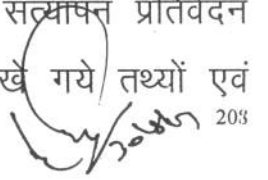 सत्यापन प्रतिवेदन
खे गये तथ्यों एवं
203